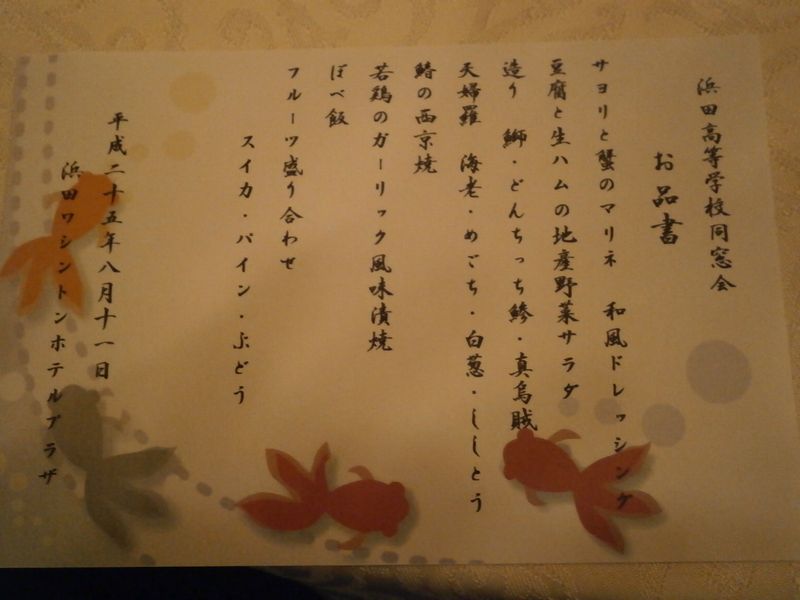 浜田高等学校同窓会
お品書
サヨリと蟹のマリネ 和風ドレッシング
豆腐と生ハムの地産野菜サラダ
造り 鰤・どんちっち鯵・真烏賊
天婦羅 海老・めごち・白葱・ししとう
鰆の西京焼
若鶏のガーリック風味漬焼
ぼべ飯
フルーツ盛り合わせ
スイカ・パイン・ぶどう
平成二十五年八月十一日
浜田ワシントンホテルプラザ